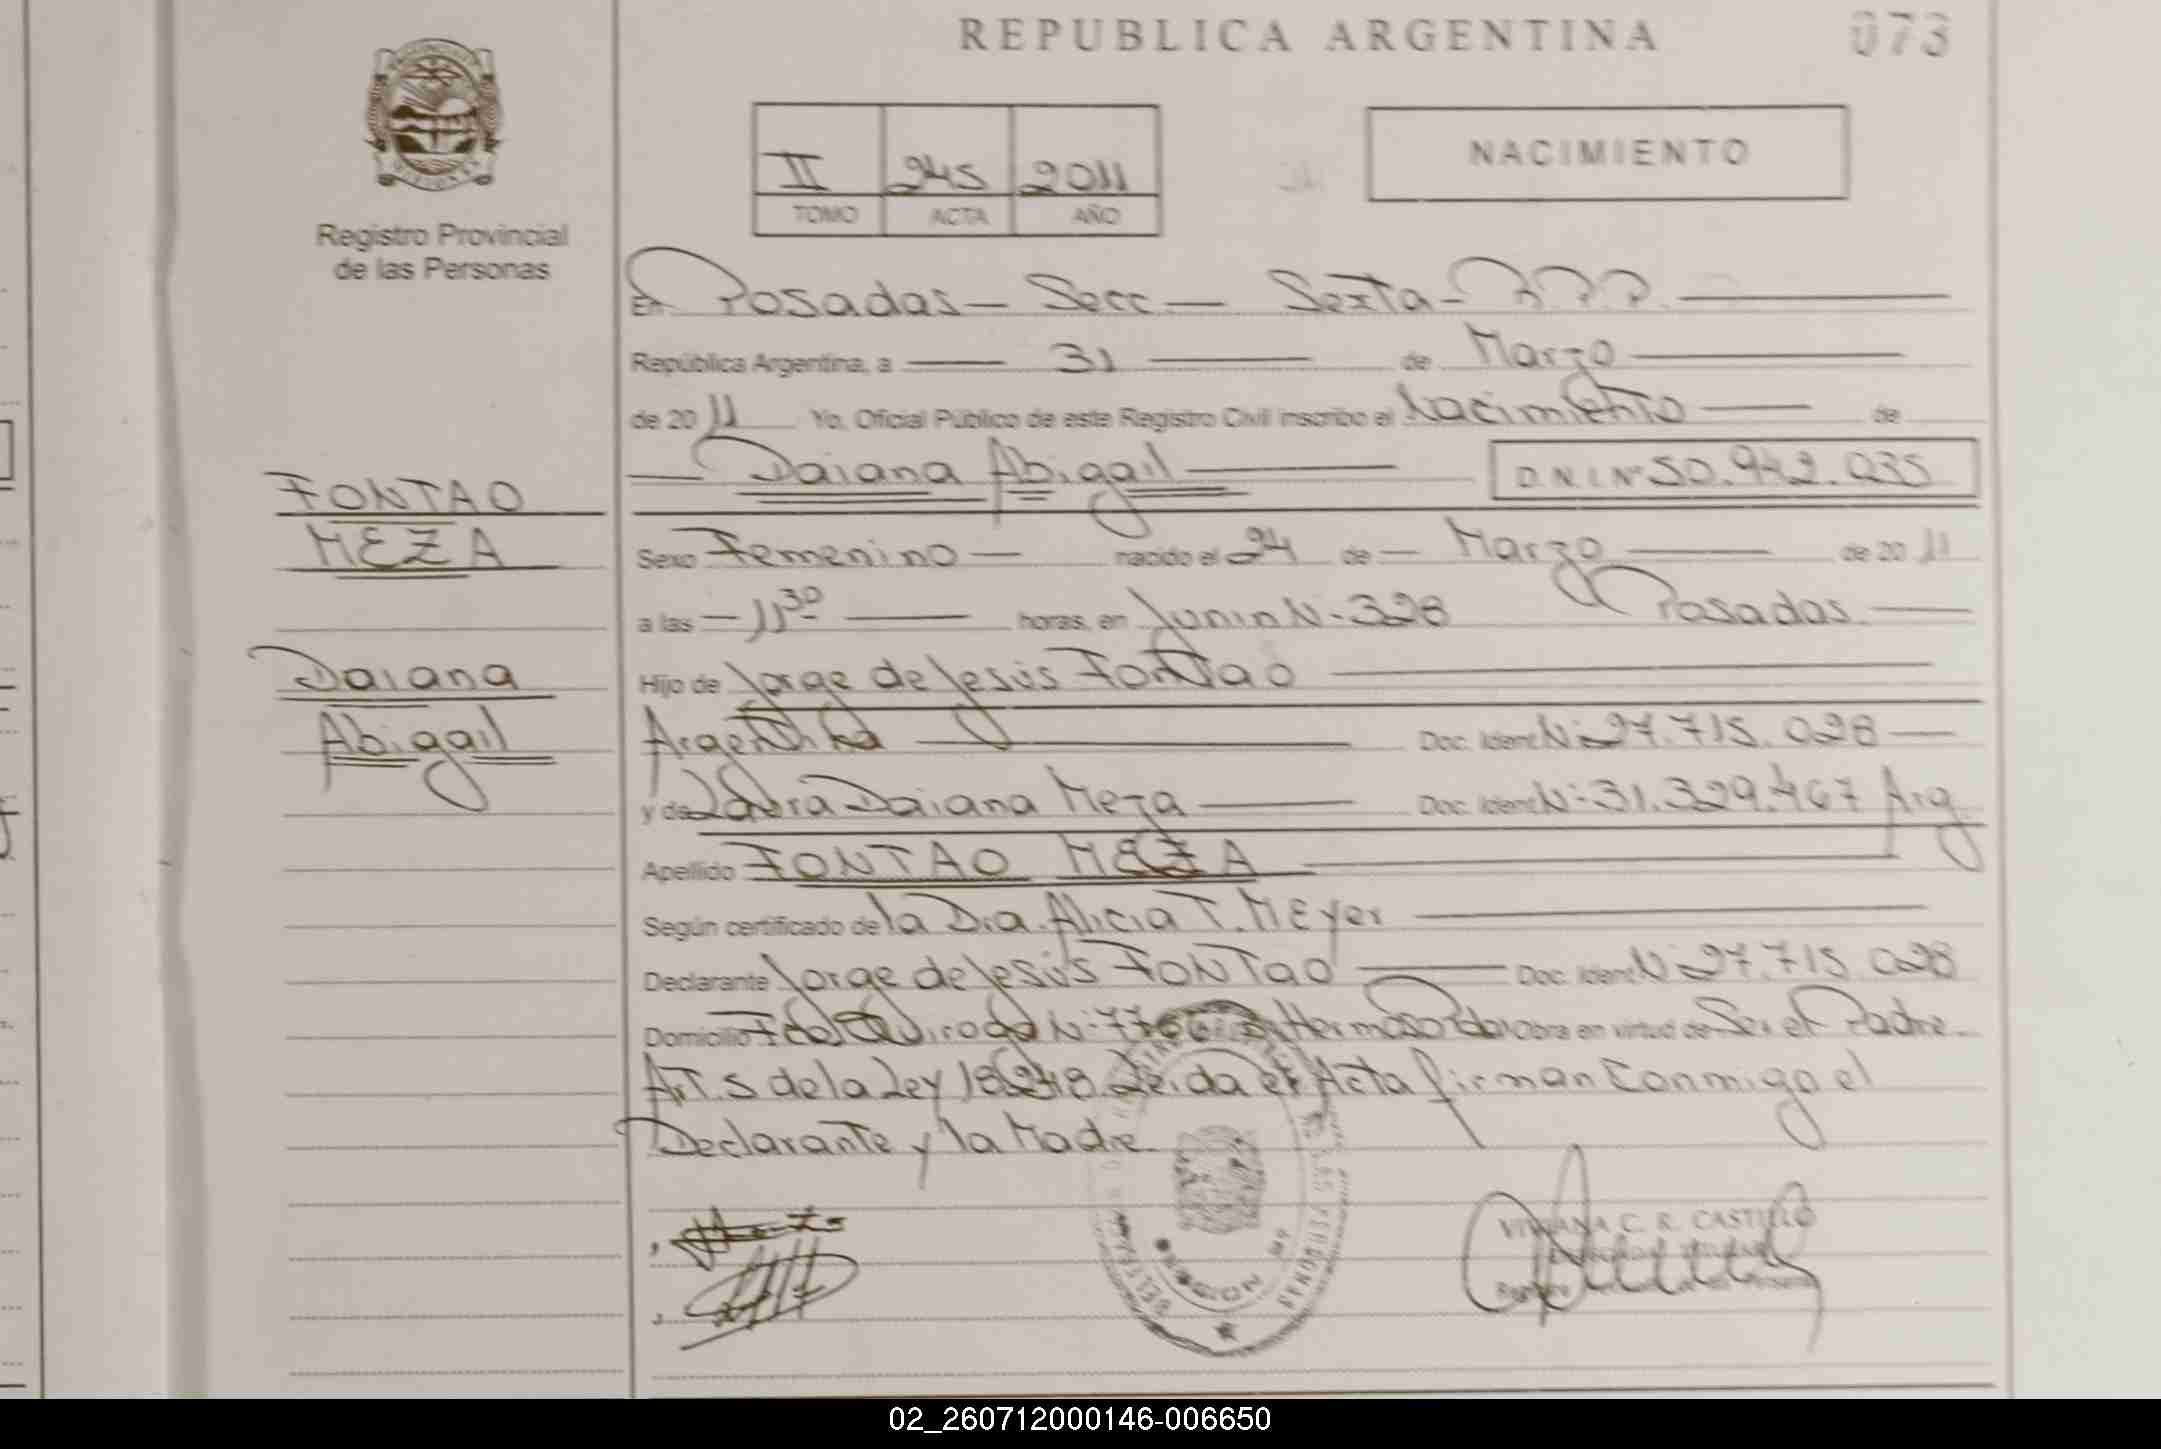 REPUBLICA ARGENTINA
073
Registro Provincial
de las Personas
II 245 2011
TOMO ACTA AÑO
NACIMIENTO
FONTAO
MEZA
Daiana
Abigail
En Posadas - Secc - Sexta -
República Argentina, a 31 de Marzo
de 2011 Yo, Oficial Público de este Registro Civil inscribo el Nacimiento de
Daiana Abigail D.N.I. Nº 50.942.035
Sexo Femenino nacido el 24 de Marzo de 2011
a las 11 30 horas, en Junin N· 328 Posadas.
Hijo de Jorge de Jesús Fontao
Argentina Doc. Ident. N· 27.715.028
y de Laura Daiana Meza Doc. Ident. N· 31.329.467 Arg.
Apellido FONTAO MEZA
Según certificado de la Dra. Alicia T. Meyer
Declarante Jorge de Jesús Fontao Doc. Ident. N· 27.715.028
Domicilio Quiroga N· Obra en virtud de Ser el Padre.
Art. 5 de la Ley 18248. Leida el Acta firman Conmigo el
Declarante y la Madre
VIVIANA C. R. CASTILLO
02_260712000146-006650